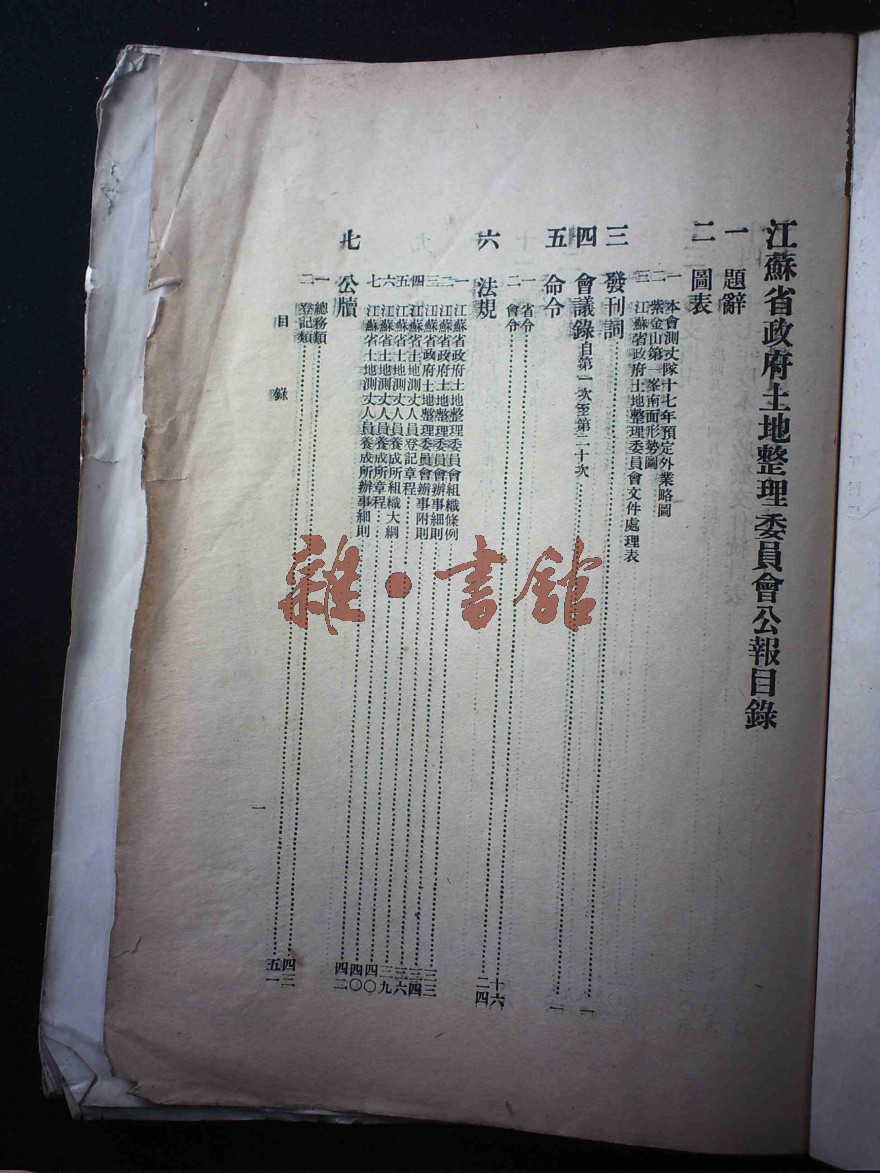 江蘇省政府土地整理委員會公報目錄
一 題辭
二 圖表
一 本會測丈隊十七年預定外業略圖
二 紫金山第一峯南面形勢圖
三 江蘇省政府土地整理委員會文件處理表
三 發刊詞
四 會議錄自第一次至第二十次……一
五 命令……一
一 省令……十六
二 會令……二四
六 法規
一 江蘇省政府土地整理委員會組織條例
二 江蘇省政府土地整理委員會辦事細則……三三
三 江蘇省政府土地整理委員會辦事附則……三四
四 江蘇省土地測丈人員登記章程……三六
五 江蘇省土地測丈人員養成所組織大綱……三九
六 江蘇省土地測丈人員養成所章程……四〇
七 江蘇省土地測丈人員養成所辦事細則……四〇
七 公牘……四二
一 總務類……四二
二 登記類……五一
目錄
一
雜·書館